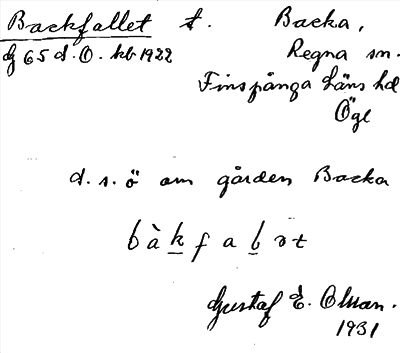 Backfallet t. Backa,
dj 65 d. O. kb 1922 Regna sn.
Finspånga läns hd
Ögl
d. s. ö om gården Backa
bàkfabət
Gustaf E. Olsson.
1931